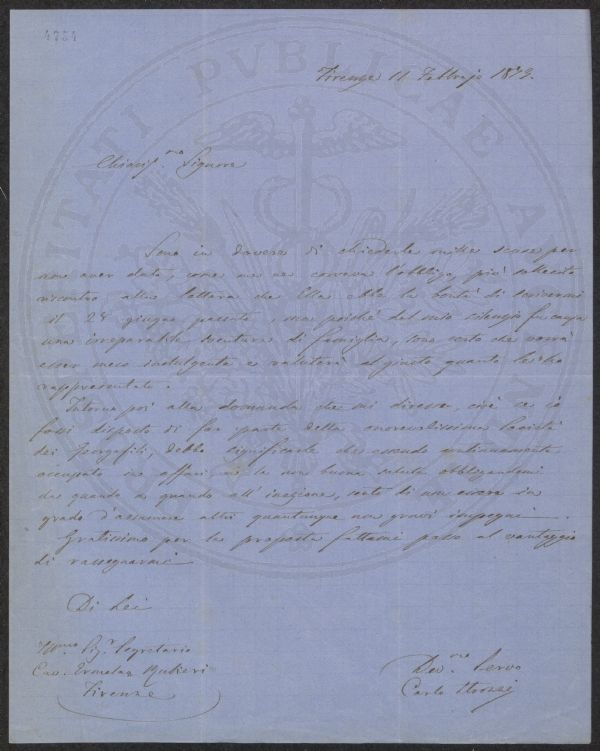 4754
Firenze 11 Febbrajo 1873.
Chiariss.mo Signore
Sono in dovere di chiederle mille scuse per
non aver dato, come me ne correva l'obbligo, più sollecito
riscontro alla lettera che Ella ebbe la bontà di scrivermi
il 28 giugno, ma poichè del mio silenzio fu causa
una irreparabile sventura di famiglia, sono certo che vorrà
esser meco indulgente e valuterà al giusto quanto le ho
rappresentato.
Intorno poi alla domanda che mi diresse, cioè se io
fossi disposto di far parte della onorevolissima Società
dei Georgofili, debbo significarle che essendo continuamente
occupato in affari, e la non buona salute obbligandomi
da quando a quando all'inazione, sento di non essere in
grado d'assumere altri quantunque non gravi impegni.
Gratissimo per la proposta fattami passo al vantaggio
di rassegnarmi
Di Lei
Segretario
Cav. Rukeri
Firenze
Dev.mo Servo
Carlo Strozzi
PVBLICAE